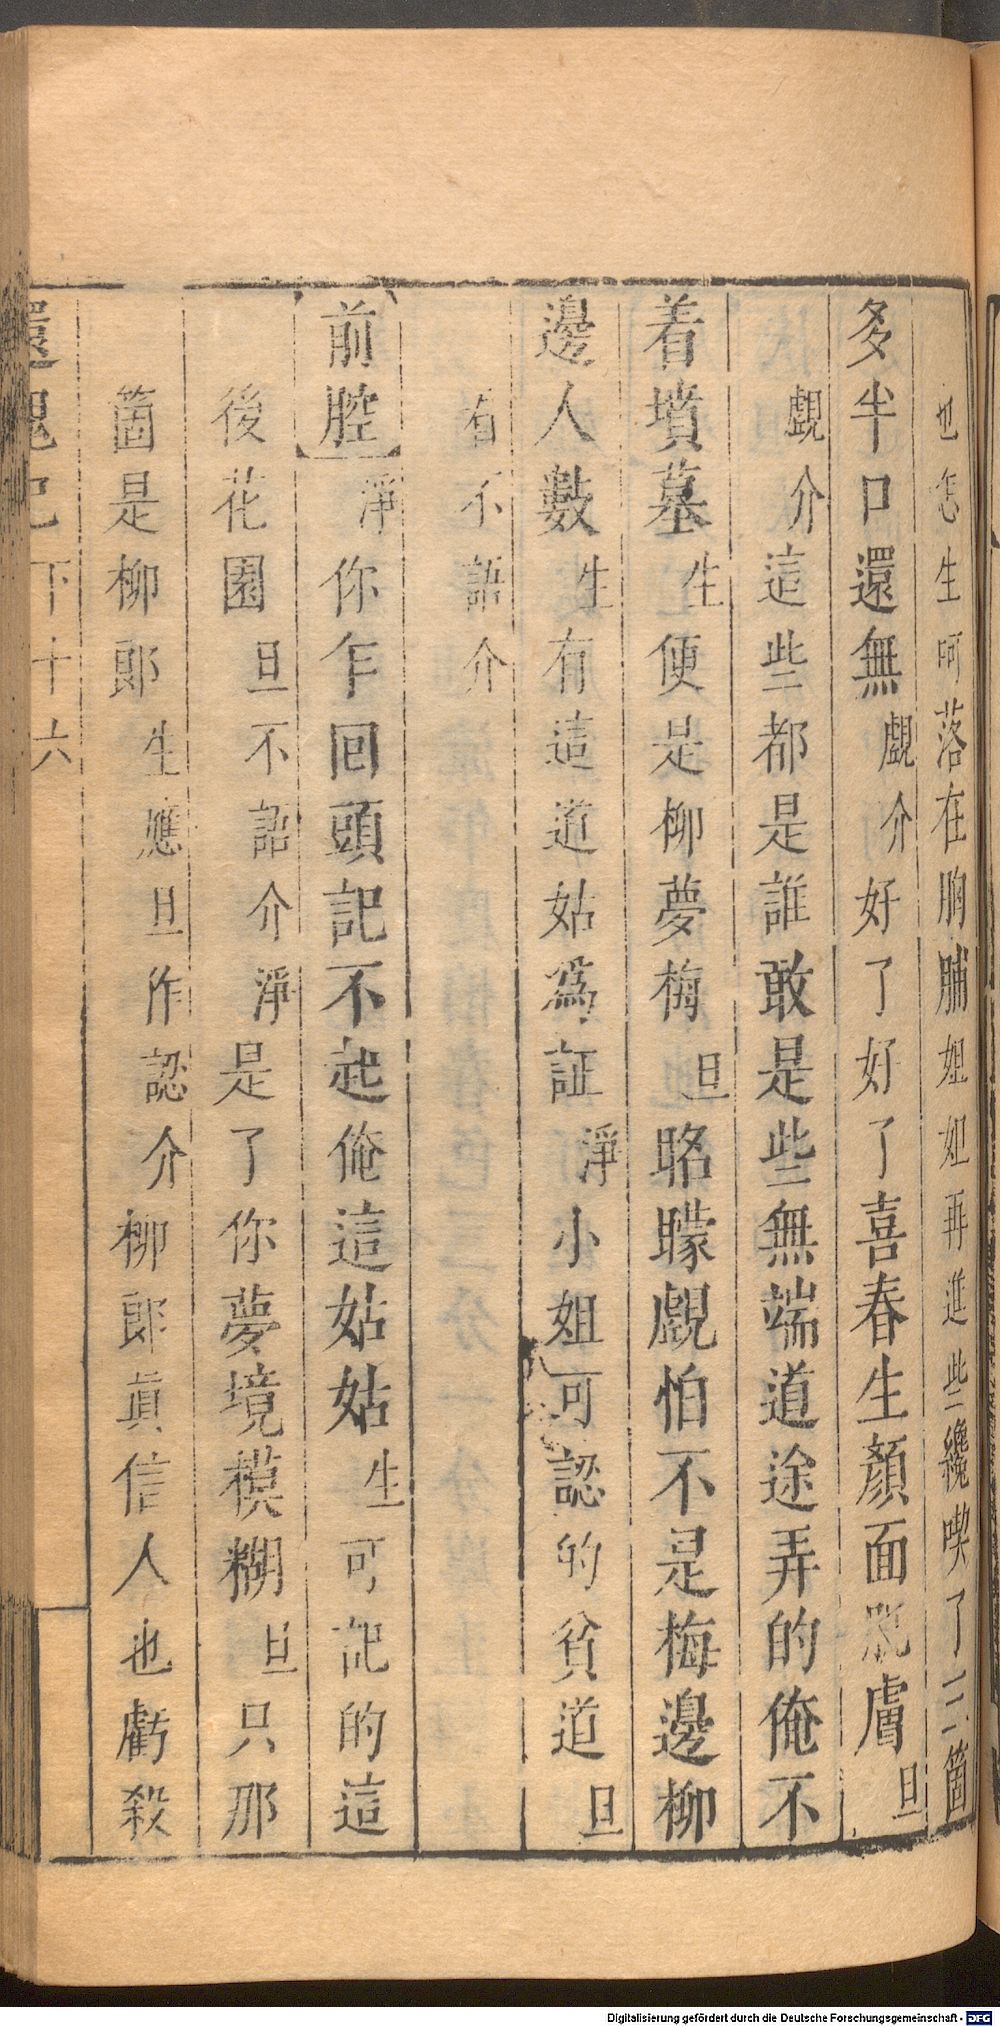 也怎生呵落在胸脯姐姐再進些纔喫了三箇
多半口還無覷介好了好了喜春生顏面肌膚旦
覷介這些都是誰敢是些無端道途弄的俺不
着墳墓生便是柳夢梅旦眳矇覷怕不是梅邊柳
邊人數生有這道姑爲証淨小姐可認的貧道旦
看不語介
前腔淨你乍回頭記不起俺這姑姑生可記的這
後花園旦不語介淨是了你夢境模糊旦只那
箇是柳郎生應旦作認介柳郎眞信人也虧殺
還魂記下十六
Digitalisierung gefördert durch die Deutsche Forschungsgemeinschaft - DFG